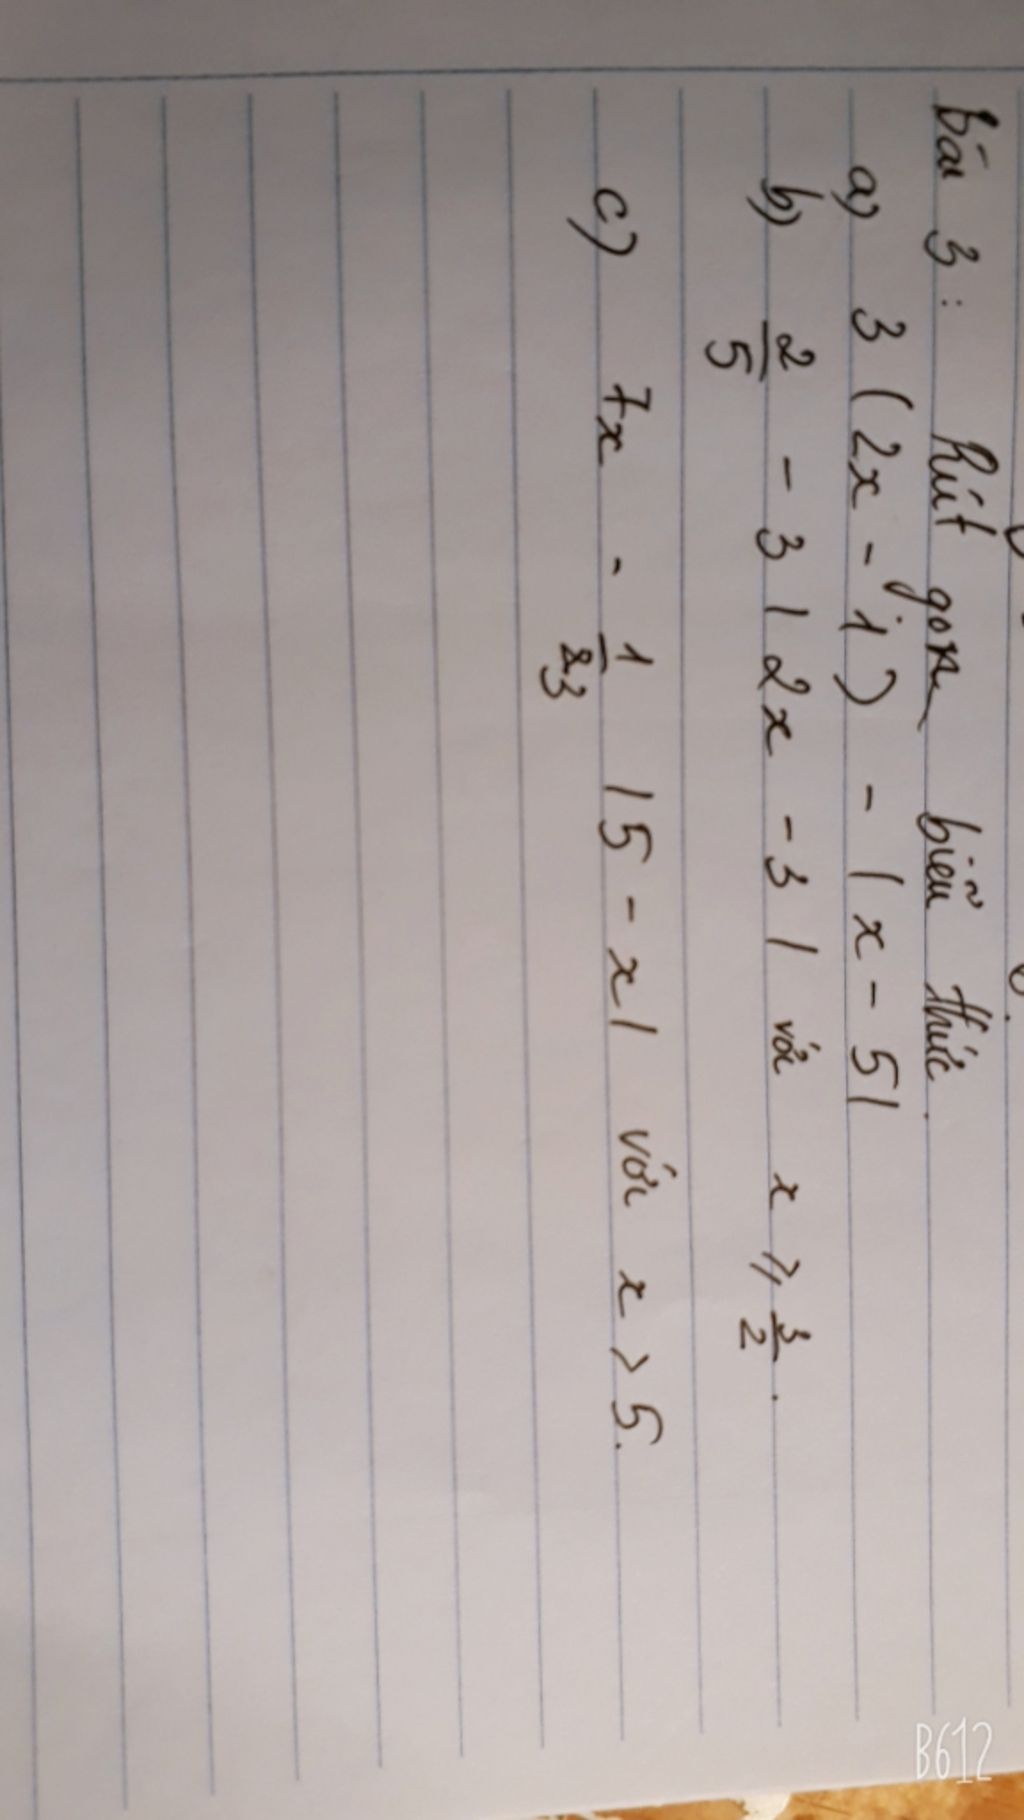 Bài 3 : Rút gọn biểu thức.
a) 3 (2x - 1) - |x - 5|
b) 2/5 - 3 |2x - 3| với x ≥ 3/2 .
c) 7x - 1/3 |5 - x| với x > 5.
B612